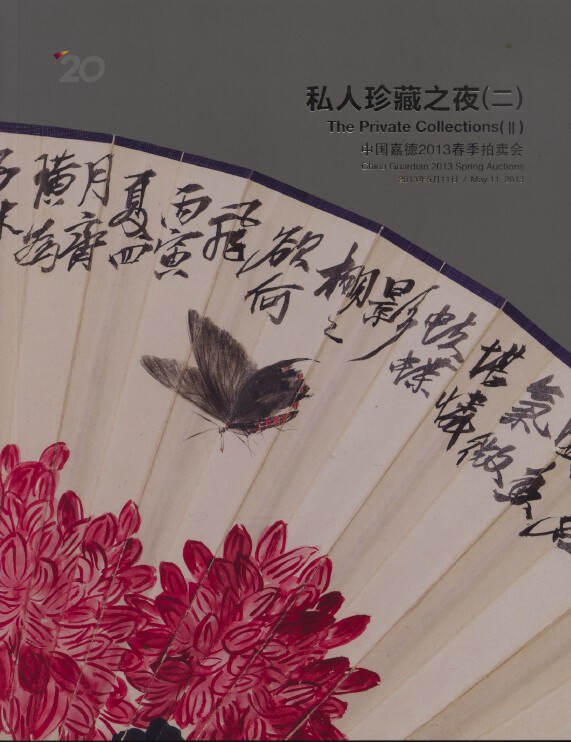 20
私人珍藏之夜(二)
The Private Collections(Ⅱ)
中国嘉德2013春季拍卖会
China Guardian 2013 Spring Auctions
2013年5月11日 / May 11, 2013
氣
堪憐微
蛺蝶
影
栩之
欲何
飛
丙寅
夏四
月齊
璜為